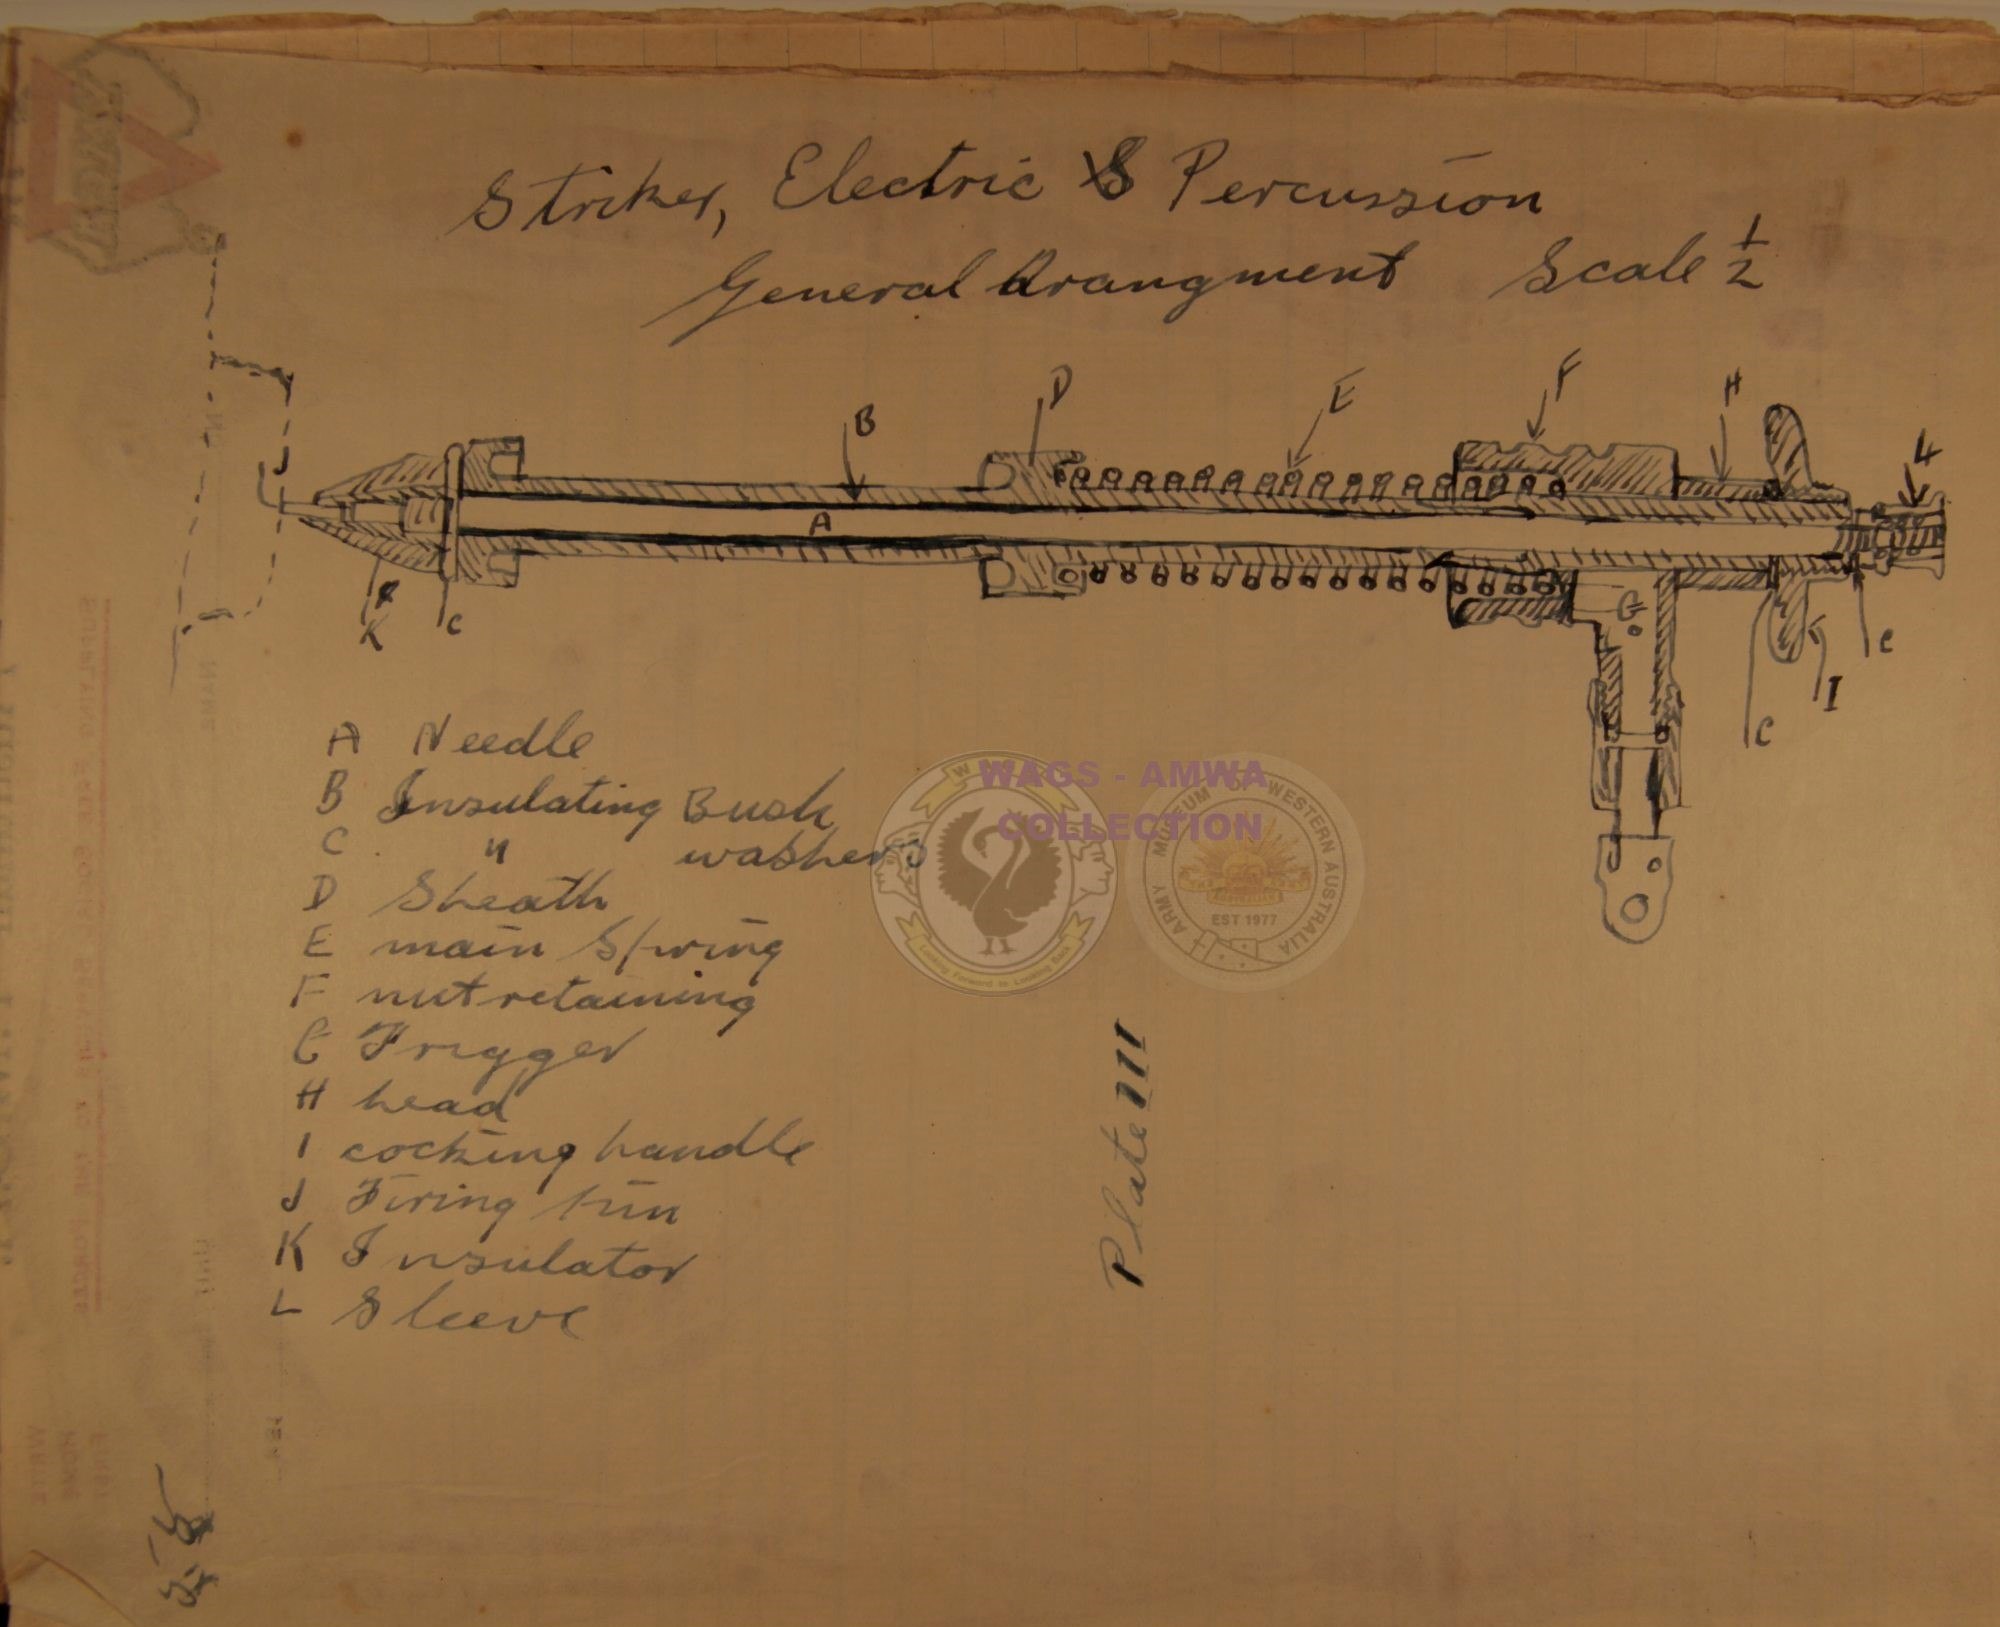 Striker, Electric & Percussion
General Arangment Scale 1/2
D
E
F
H
B
L
J
A
e
G
K
C
e
I
C
A Needle
B Insulating Bush
C " washers
D Sheath
E main Spring
F nut retaining
G Trigger
H head
I cocking handle
J Firing pin
K Insulator
L Sleeve
Plate III
WAGS - AMWA
COLLECTION
ARMY MUSEUM OF WESTERN AUSTRALIA
EST 1977
Looking Forward to Looking Back